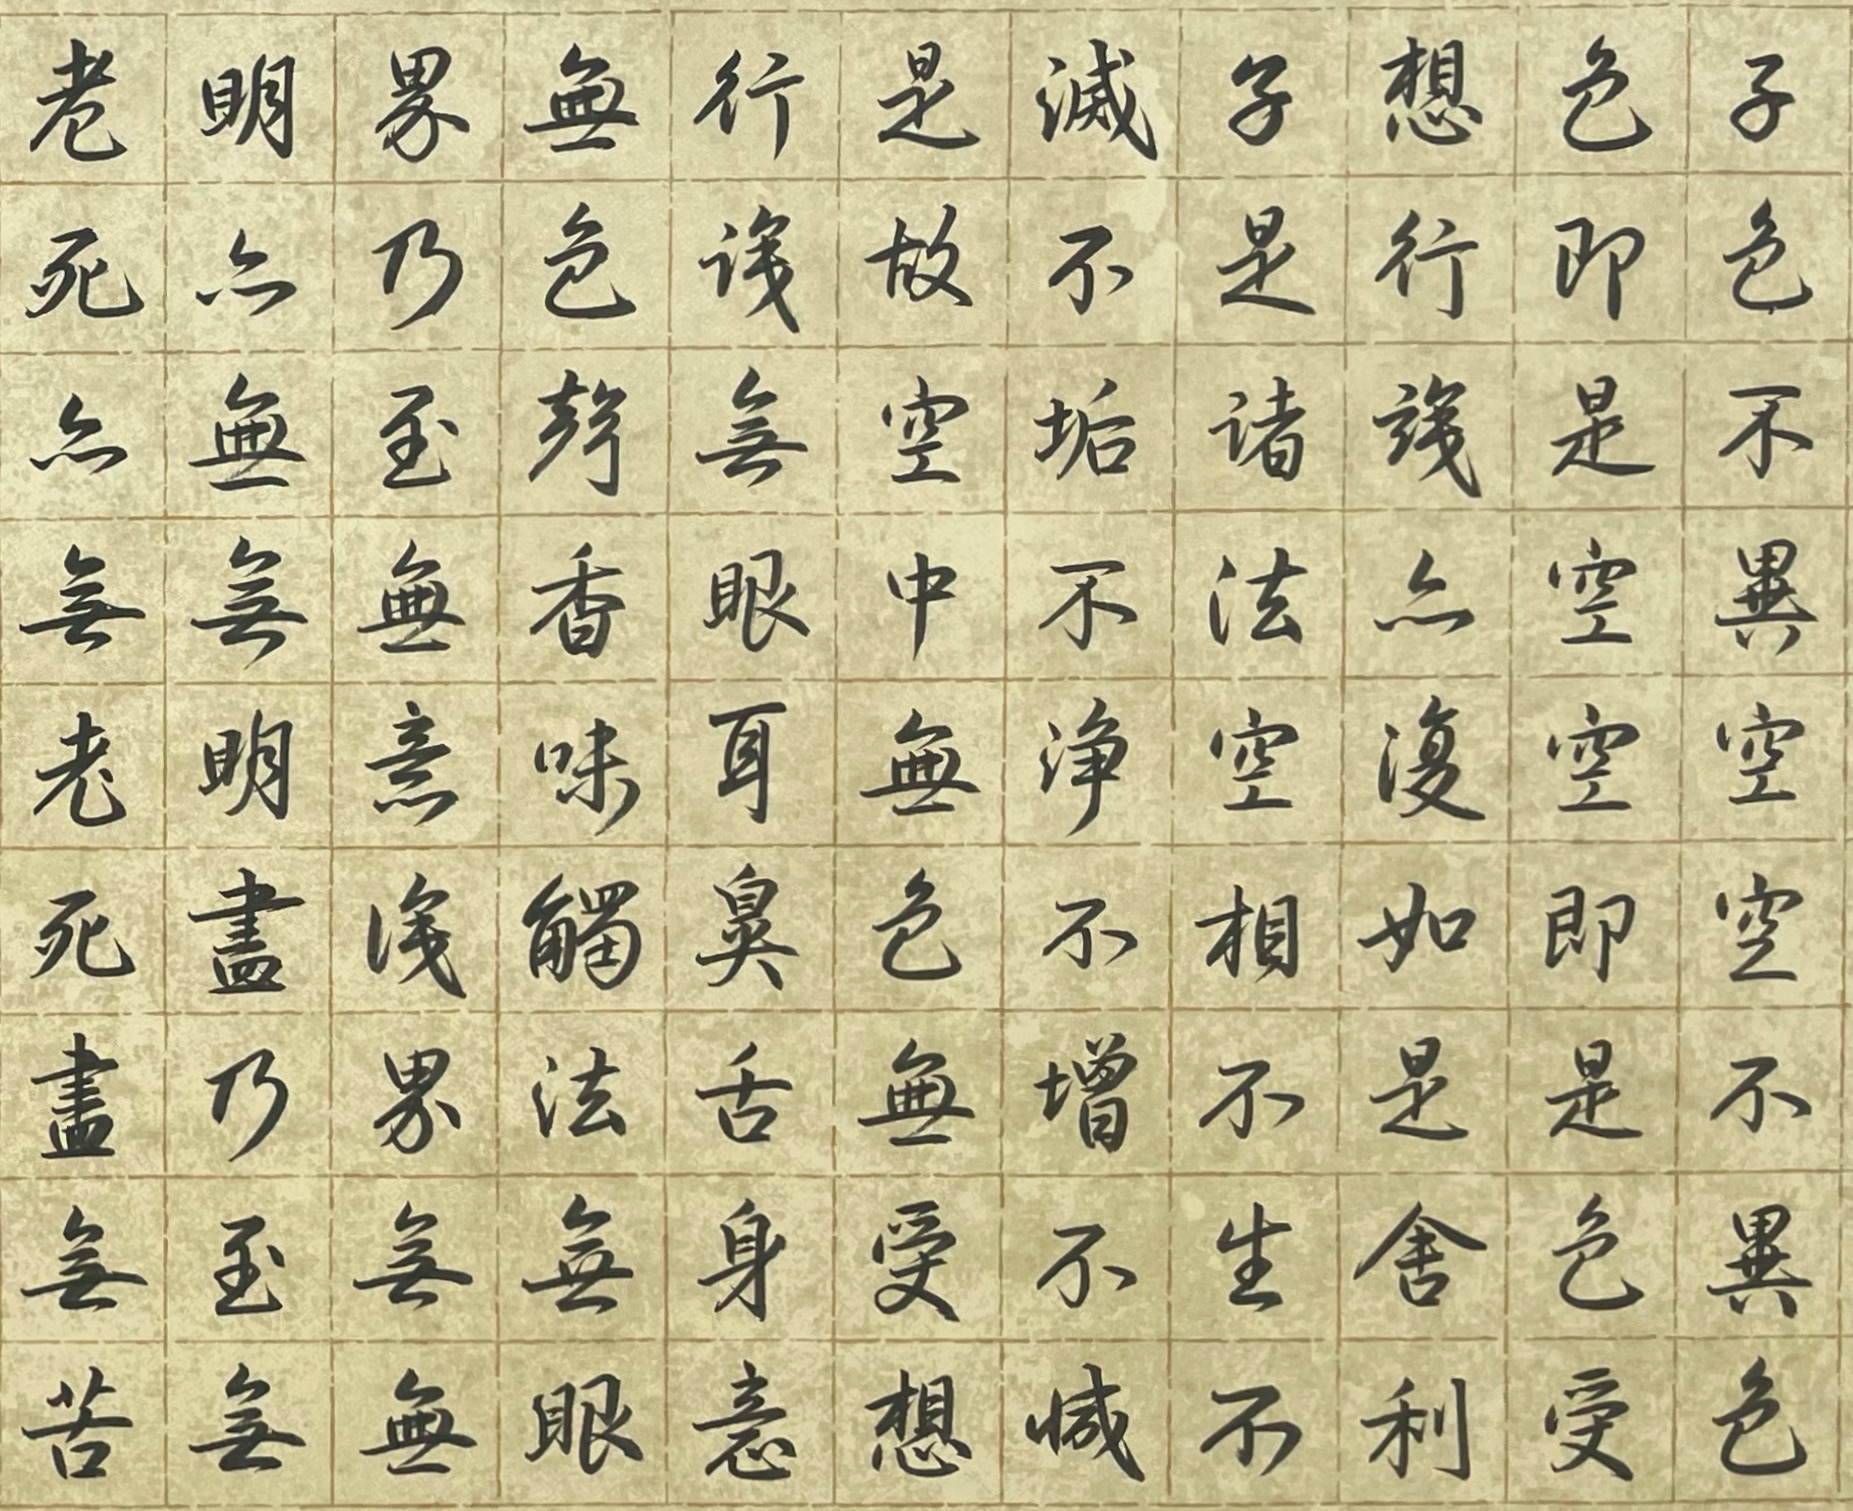 子色不異空空不異色
色即是空空即是色受
想行識亦復如是舍利
子是諸法空相不生不
滅不垢不淨不增不減
是故空中無色無受想
行識無眼耳鼻舌身意
無色聲香味觸法無眼
界乃至無意識界無無
明亦無無明盡乃至無
老死亦無老死盡無苦